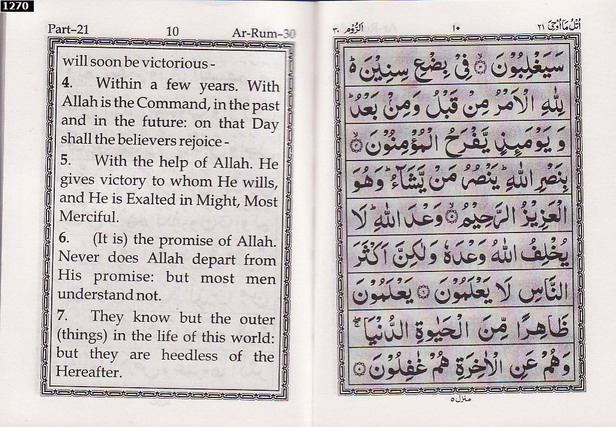 1270
Part–21 10 Ar-Rum–30
will soon be victorious -
4. Within a few years. With
Allah is the Command, in the past
and in the future: on that Day
shall the believers rejoice -
5. With the help of Allah. He
gives victory to whom He wills,
and He is Exalted in Might, Most
Merciful.
6. (It is) the promise of Allah.
Never does Allah depart from
His promise: but most men
understand not.
7. They know but the outer
(things) in the life of this world:
but they are heedless of the
Hereafter.
اُتْلُ مَا اُوْحِیَ ۲۱ ۱۰ اَلرُّوْم ۳۰
سَيَغْلِبُوْنَ ۙ۳ فِىْ بِضْعِ سِنِيْنَ ؕ
لِلّٰهِ الْاَمْرُ مِنْ قَبْلُ وَمِنْۢ بَعْدُ ؕ
وَ يَوْمَىِٕذٍ يَّفْرَحُ الْمُؤْمِنُوْنَ ۙ۴
بِنَصْرِ اللّٰهِ ؕ يَنْصُرُ مَنْ يَّشَآءُ ؕ وَهُوَ
الْعَزِيْزُ الرَّحِيْمُ ۙ۵ وَعْدَ اللّٰهِ ؕ لَا
يُخْلِفُ اللّٰهُ وَعْدَهٗ وَلٰكِنَّ اَكْثَرَ
النَّاسِ لَا يَعْلَمُوْنَ ۶ يَعْلَمُوْنَ
ظَاهِرًا مِّنَ الْحَيٰوةِ الدُّنْيَا ۖۚ
وَهُمْ عَنِ الْاٰخِرَةِ هُمْ غٰفِلُوْنَ ۷
منزل ۵